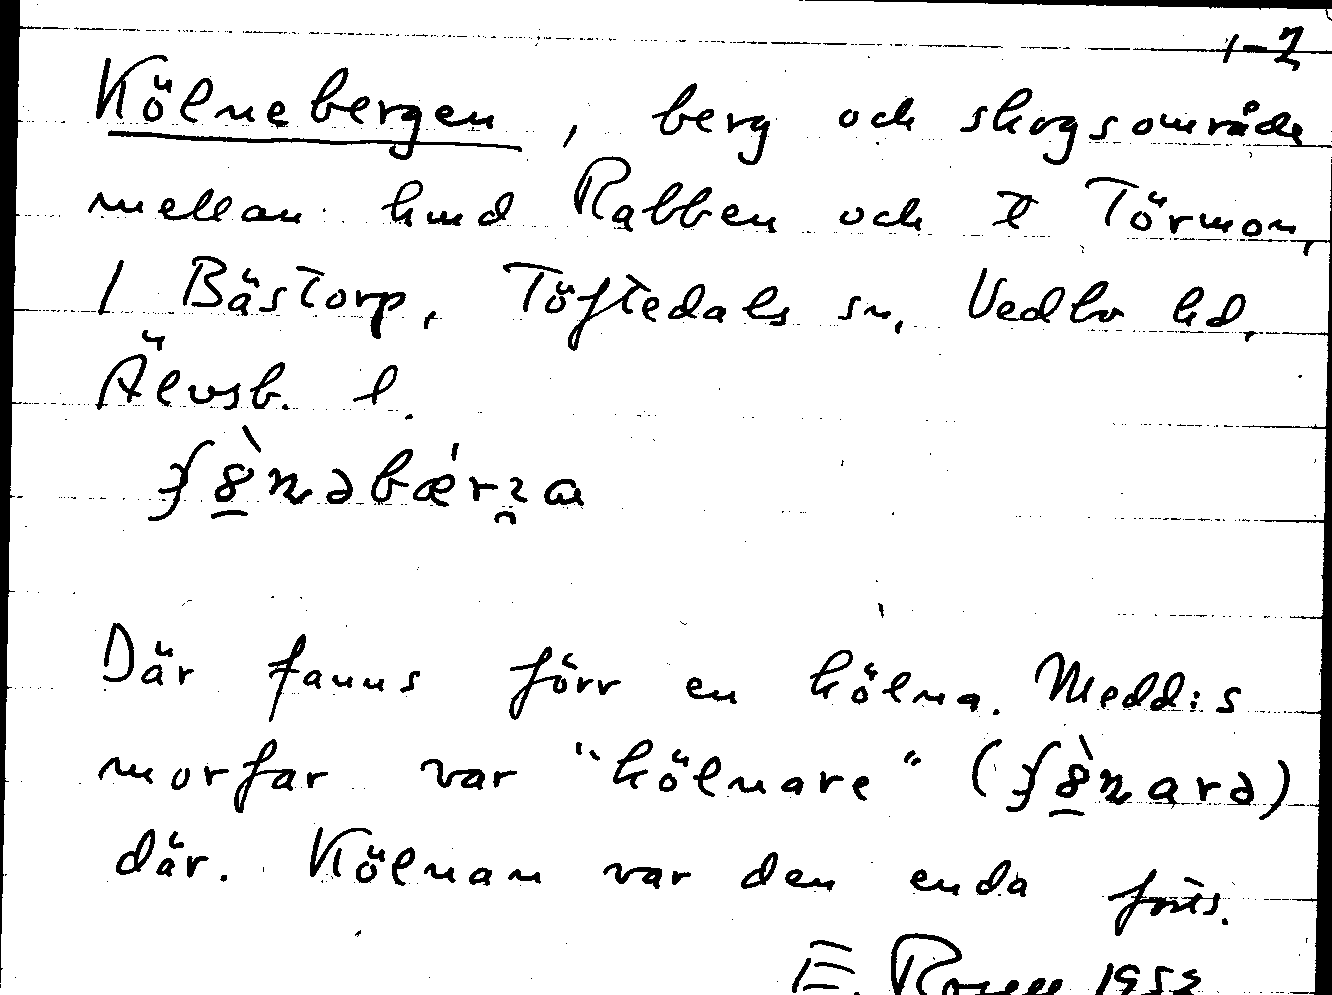 1-2
Kölnebergen, berg och skogsområde
mellan hmd Rabben och Törmon,
i Bästorp, Töftedals sn, Vedbo hd,
Älvsb. l.
Där fanns förr en kölna. Medd:s
morfar var "kölnare"
där. Kölnan var den enda forts.
E. 1952